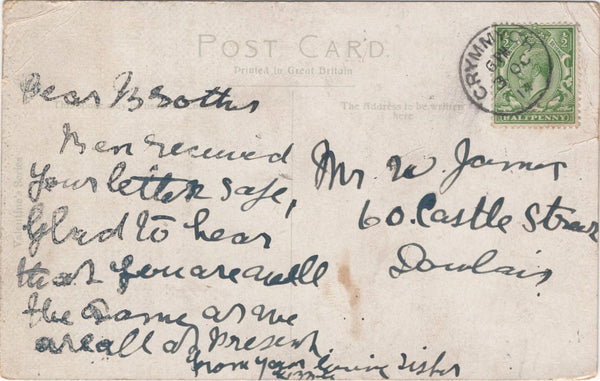 POST CARD.
Printed in Great Britain
The Address to be written
here
CRYMMYCH
OC
14
HALFPENNY
Dear Brother
your letter safe,
Glad to hear
that you are well
the same as we
are all at Present
from your loving sister
Mr W. James
60. Castle Street
Dowlais